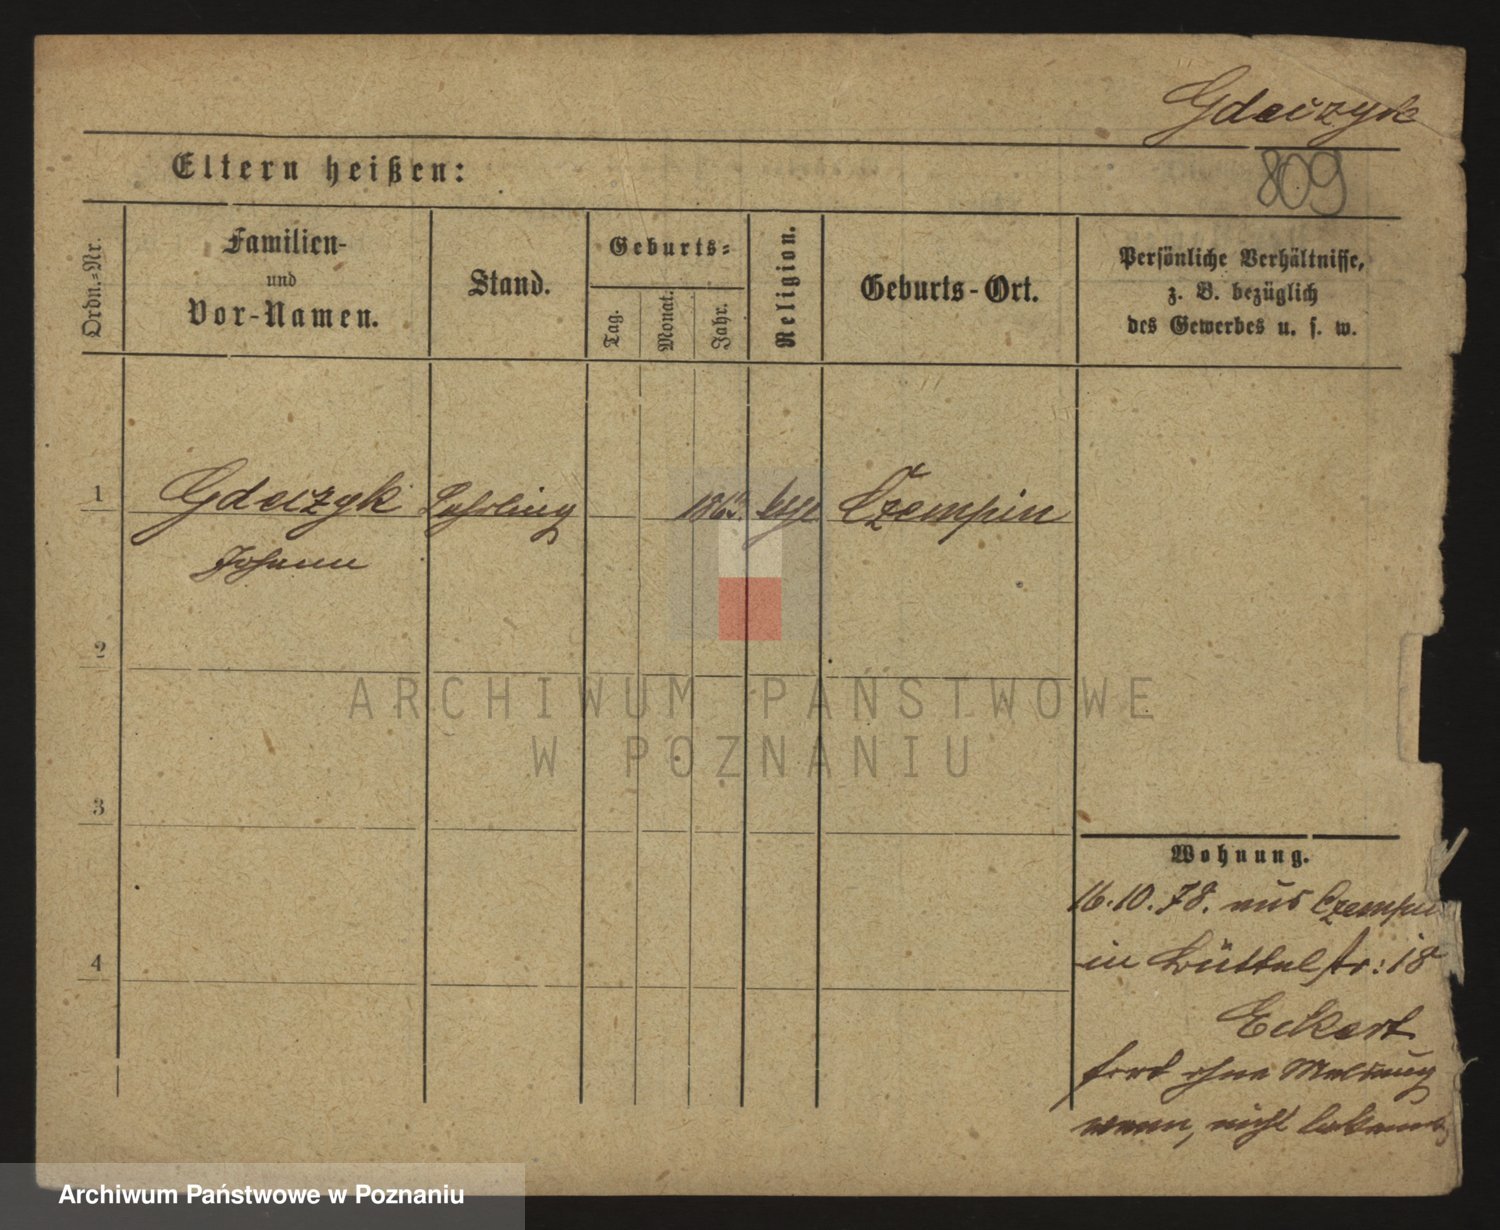 Gdeczyk
809
Eltern heißen:
Ordn.-Nr.
Familien-
und
Vor-Namen.
Stand.
Geburts-
Tag.
Monat.
Jahr.
Religion.
Geburts-Ort.
Persönliche Verhältnisse,
z. B. bezüglich
des Gewerbes u. s. w.
1
Gdeczyk Lehrling Czempin
Johann
2
ARCHIWUM PAŃSTWOWE
W POZNANIU
3
4
Wohnung.
16.10.78. aus Czempin
in Büttelstr: 18
Eckert
fort ohne Meldung
wann, nicht bekannt
Archiwum Państwowe w Poznaniu